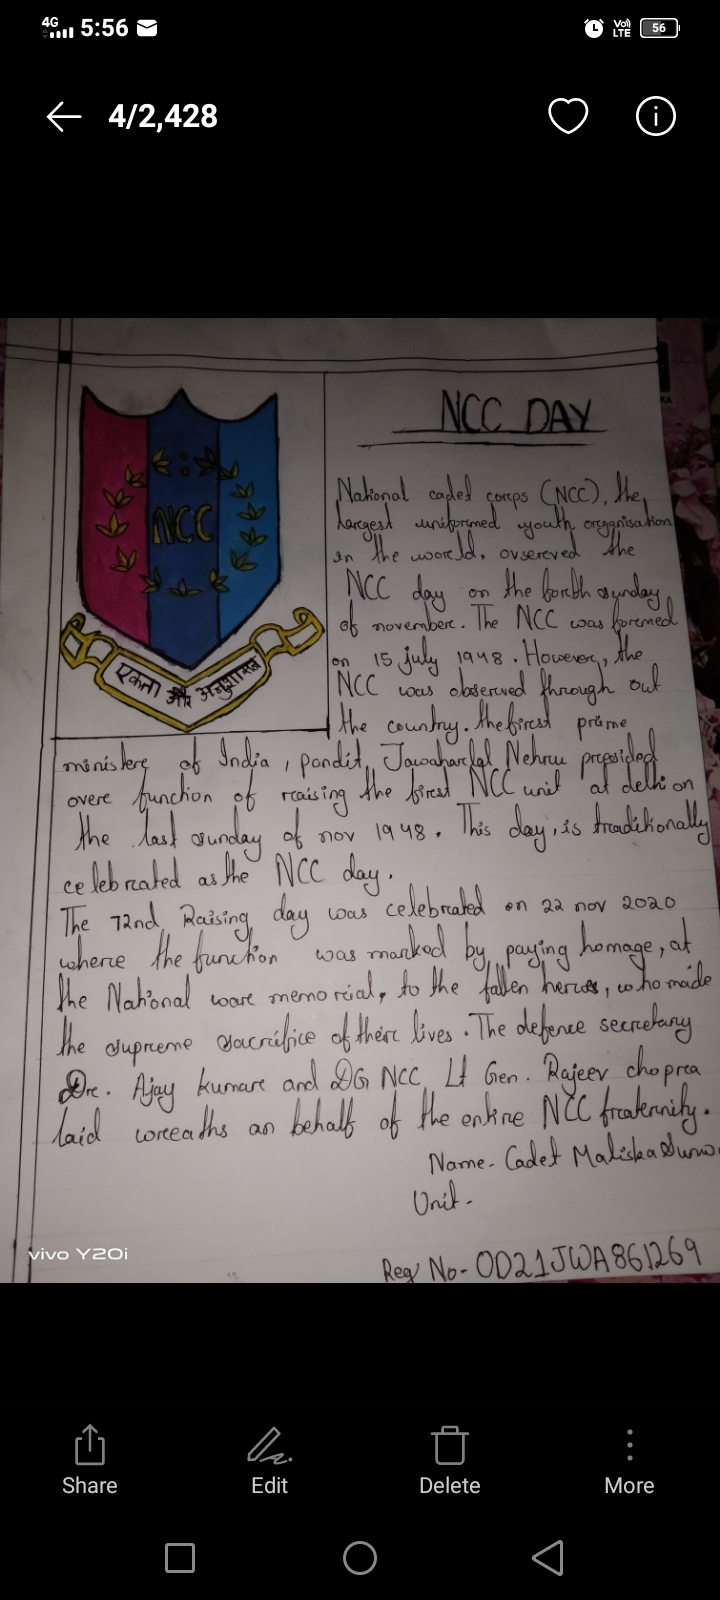 4G 5:56 Vo) LTE 56
4/2,428
NCC DAY
NCC
एकता और अनुशासन
National cadet corps (NCC), the
largest uniformed youth organisation
in the world, ovsereved the
NCC day on the forth sunday
of november. The NCC was foremed
on 15 july 1948. However, the
NCC was observed through out
the country. the first prime
ministere of India, pandit, Jawaharlal Nehru presided
overe function of raising the first NCC unit at delhi on
the last sunday of nov 1948. This day, is traditionally
celebrated as the NCC day.
The 72nd Raising day was celebrated on 22 nov 2020
where the function was marked by paying homage, at
the National ware memorial, to the fallen heroes, who made
the supreme sacrifice of their lives. The defence secretary
Dre. Ajay kumare and DG NCC Lt Gen. Rajeev chopra
laid wreaths on behalf of the entire NCC fraternity.
Name- Cadet Maliska
Unit-
vivo Y20i
Reg No- OD21JWA861269
Share Edit Delete More